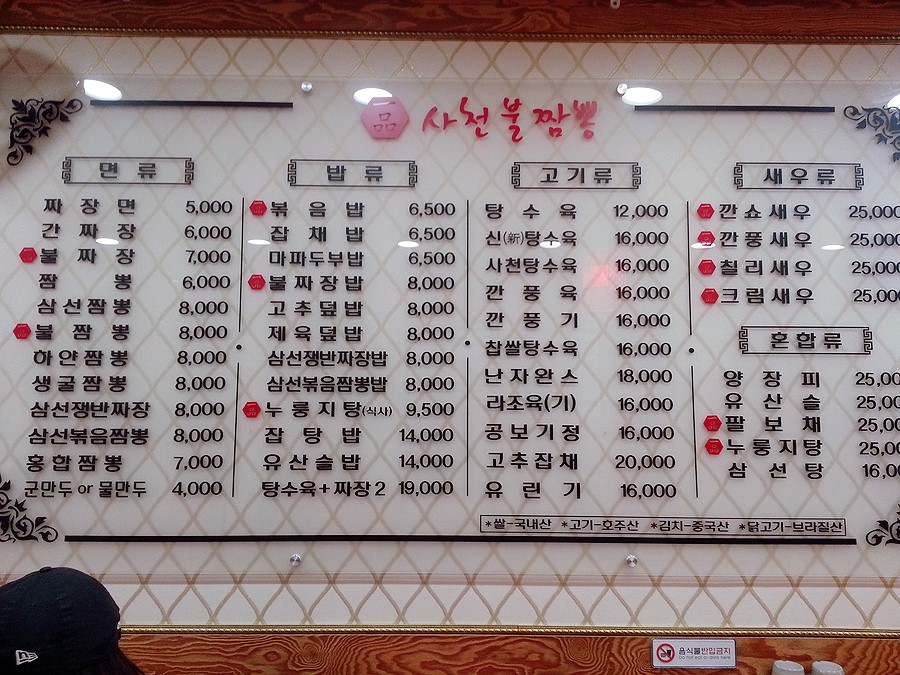 一品 사천불짬뽕
면류
짜장면 5,000
간짜장 6,000
불짜장 7,000
짬뽕 6,000
삼선짬뽕 8,000
불짬뽕 8,000
하얀짬뽕 8,000
생굴짬뽕 8,000
삼선쟁반짜장 8,000
삼선볶음짬뽕 8,000
홍합짬뽕 7,000
군만두 or 물만두 4,000
밥류
볶음밥 6,500
잡채밥 6,500
마파두부밥 6,500
불짜장밥 8,000
고추덮밥 8,000
제육덮밥 8,000
삼선쟁반짜장밥 8,000
삼선볶음짬뽕밥 8,000
누룽지탕(식사) 9,500
잡탕밥 14,000
유산슬밥 14,000
탕수육+짜장2 19,000
고기류
탕수육 12,000
신(新)탕수육 16,000
사천탕수육 16,000
깐풍육 16,000
깐풍기 16,000
찹쌀탕수육 16,000
난자완스 18,000
라조육(기) 16,000
공보기정 16,000
고추잡채 20,000
유린기 16,000
새우류
깐쇼새우 25,000
깐풍새우 25,000
칠리새우 25,000
크림새우 25,000
혼합류
양장피 25,00
유산슬 25,00
팔보채 25,00
누룽지탕 25,00
삼선탕 16,00
*쌀-국내산 *고기-호주산 *김치-중국산 *닭고기-브라질산
음식물반입금지